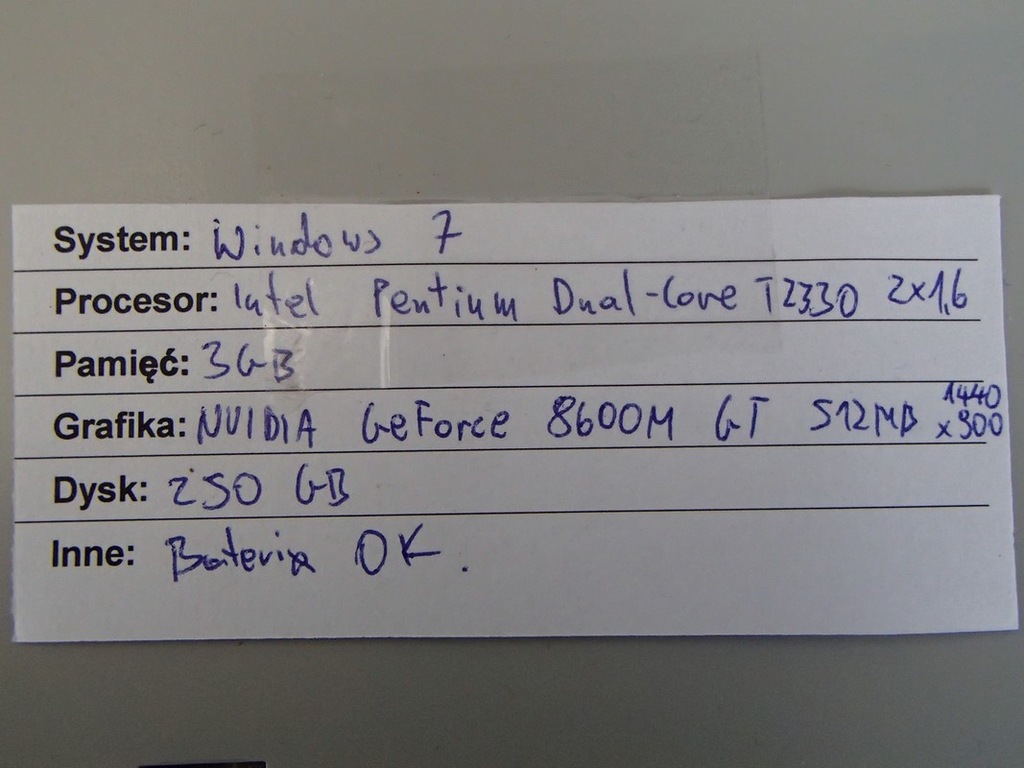 System: Windows 7
Procesor: Intel Pentium Dual-Core T2330 2x1,6
Pamięć: 3GB
Grafika: NVIDIA GeForce 8600M GT 512MB 1440 x900
Dysk: 250 GB
Inne: Bateria OK.